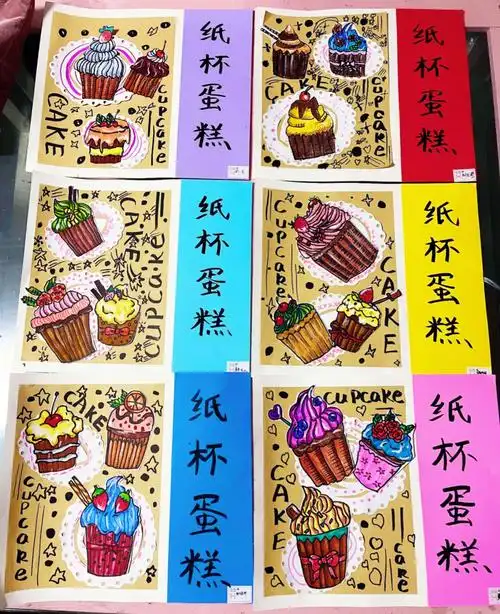 CAKE
cupcake
纸杯蛋糕
CAKE
cupcake
纸杯蛋糕
CAKE
CUPCAKE
纸杯蛋糕
Cupcake
CAKE
纸杯蛋糕
CAKE
CUPCAKE
纸杯蛋糕
cupcake
CAKE
cake
纸杯蛋糕